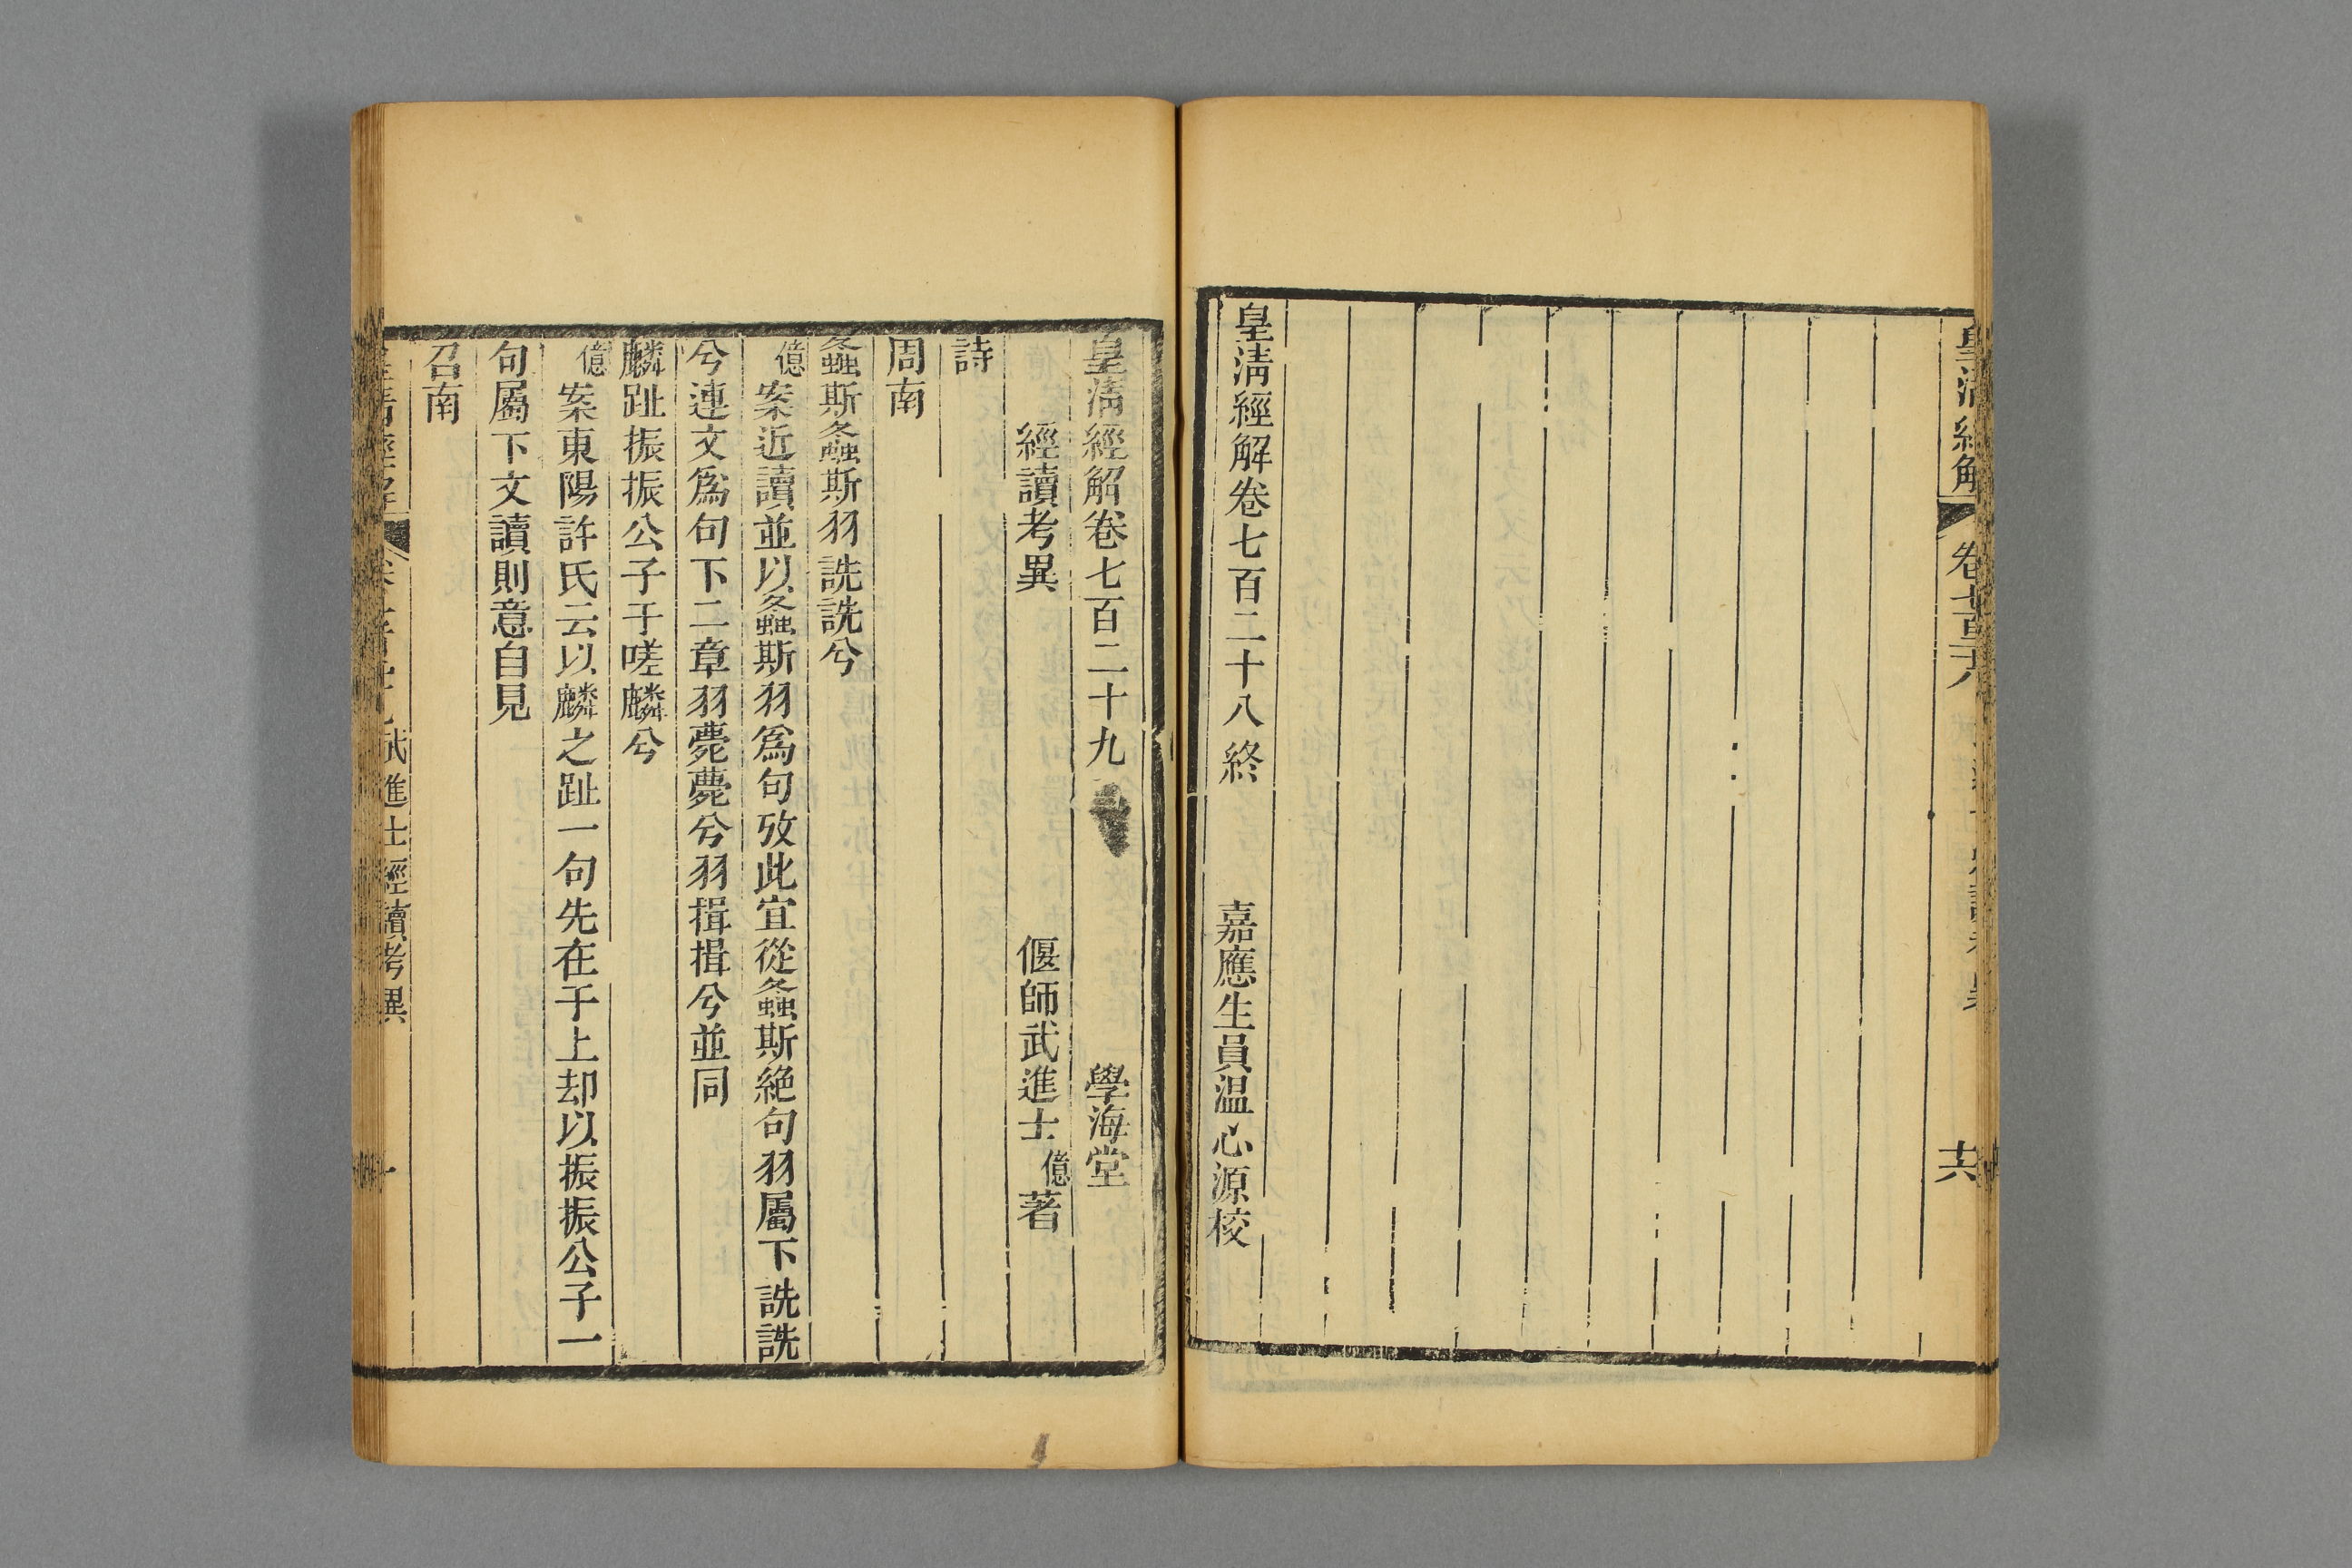 皇清經解
卷七百二十八
六
皇清經解卷七百二十八終 嘉應生員温心源校
皇清經解卷七百二十九 學海堂
經讀考異 偃師武進士億著
詩
周南
螽斯螽斯羽詵詵兮
億案近讀並以螽斯羽爲句攷此宜從螽斯絶句羽屬下詵詵
兮連文爲句下二章羽薨薨兮羽揖揖兮並同
麟趾振振公子于嗟麟兮
億案東陽許氏云以麟之趾一句先在于上却以振振公子一
句屬下文讀則意自見
召南
武進士經讀考異
一